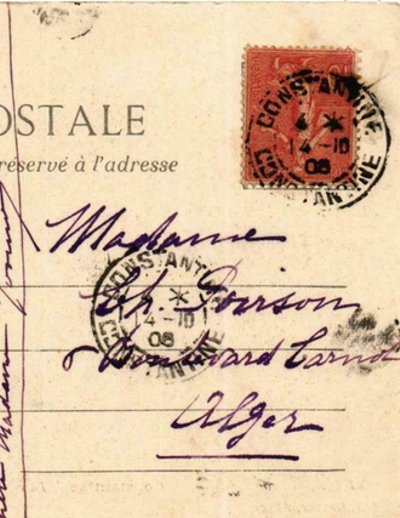 OSTALE
réservé à l'adresse
CONSTANTINE
4 *
14-10
06
CONSTANTINE
Madame
Ch. Poirson
Boulevard Carnot
Alger
CONSTANTINE
4 *
14-10
06
CONSTANTINE
Madame